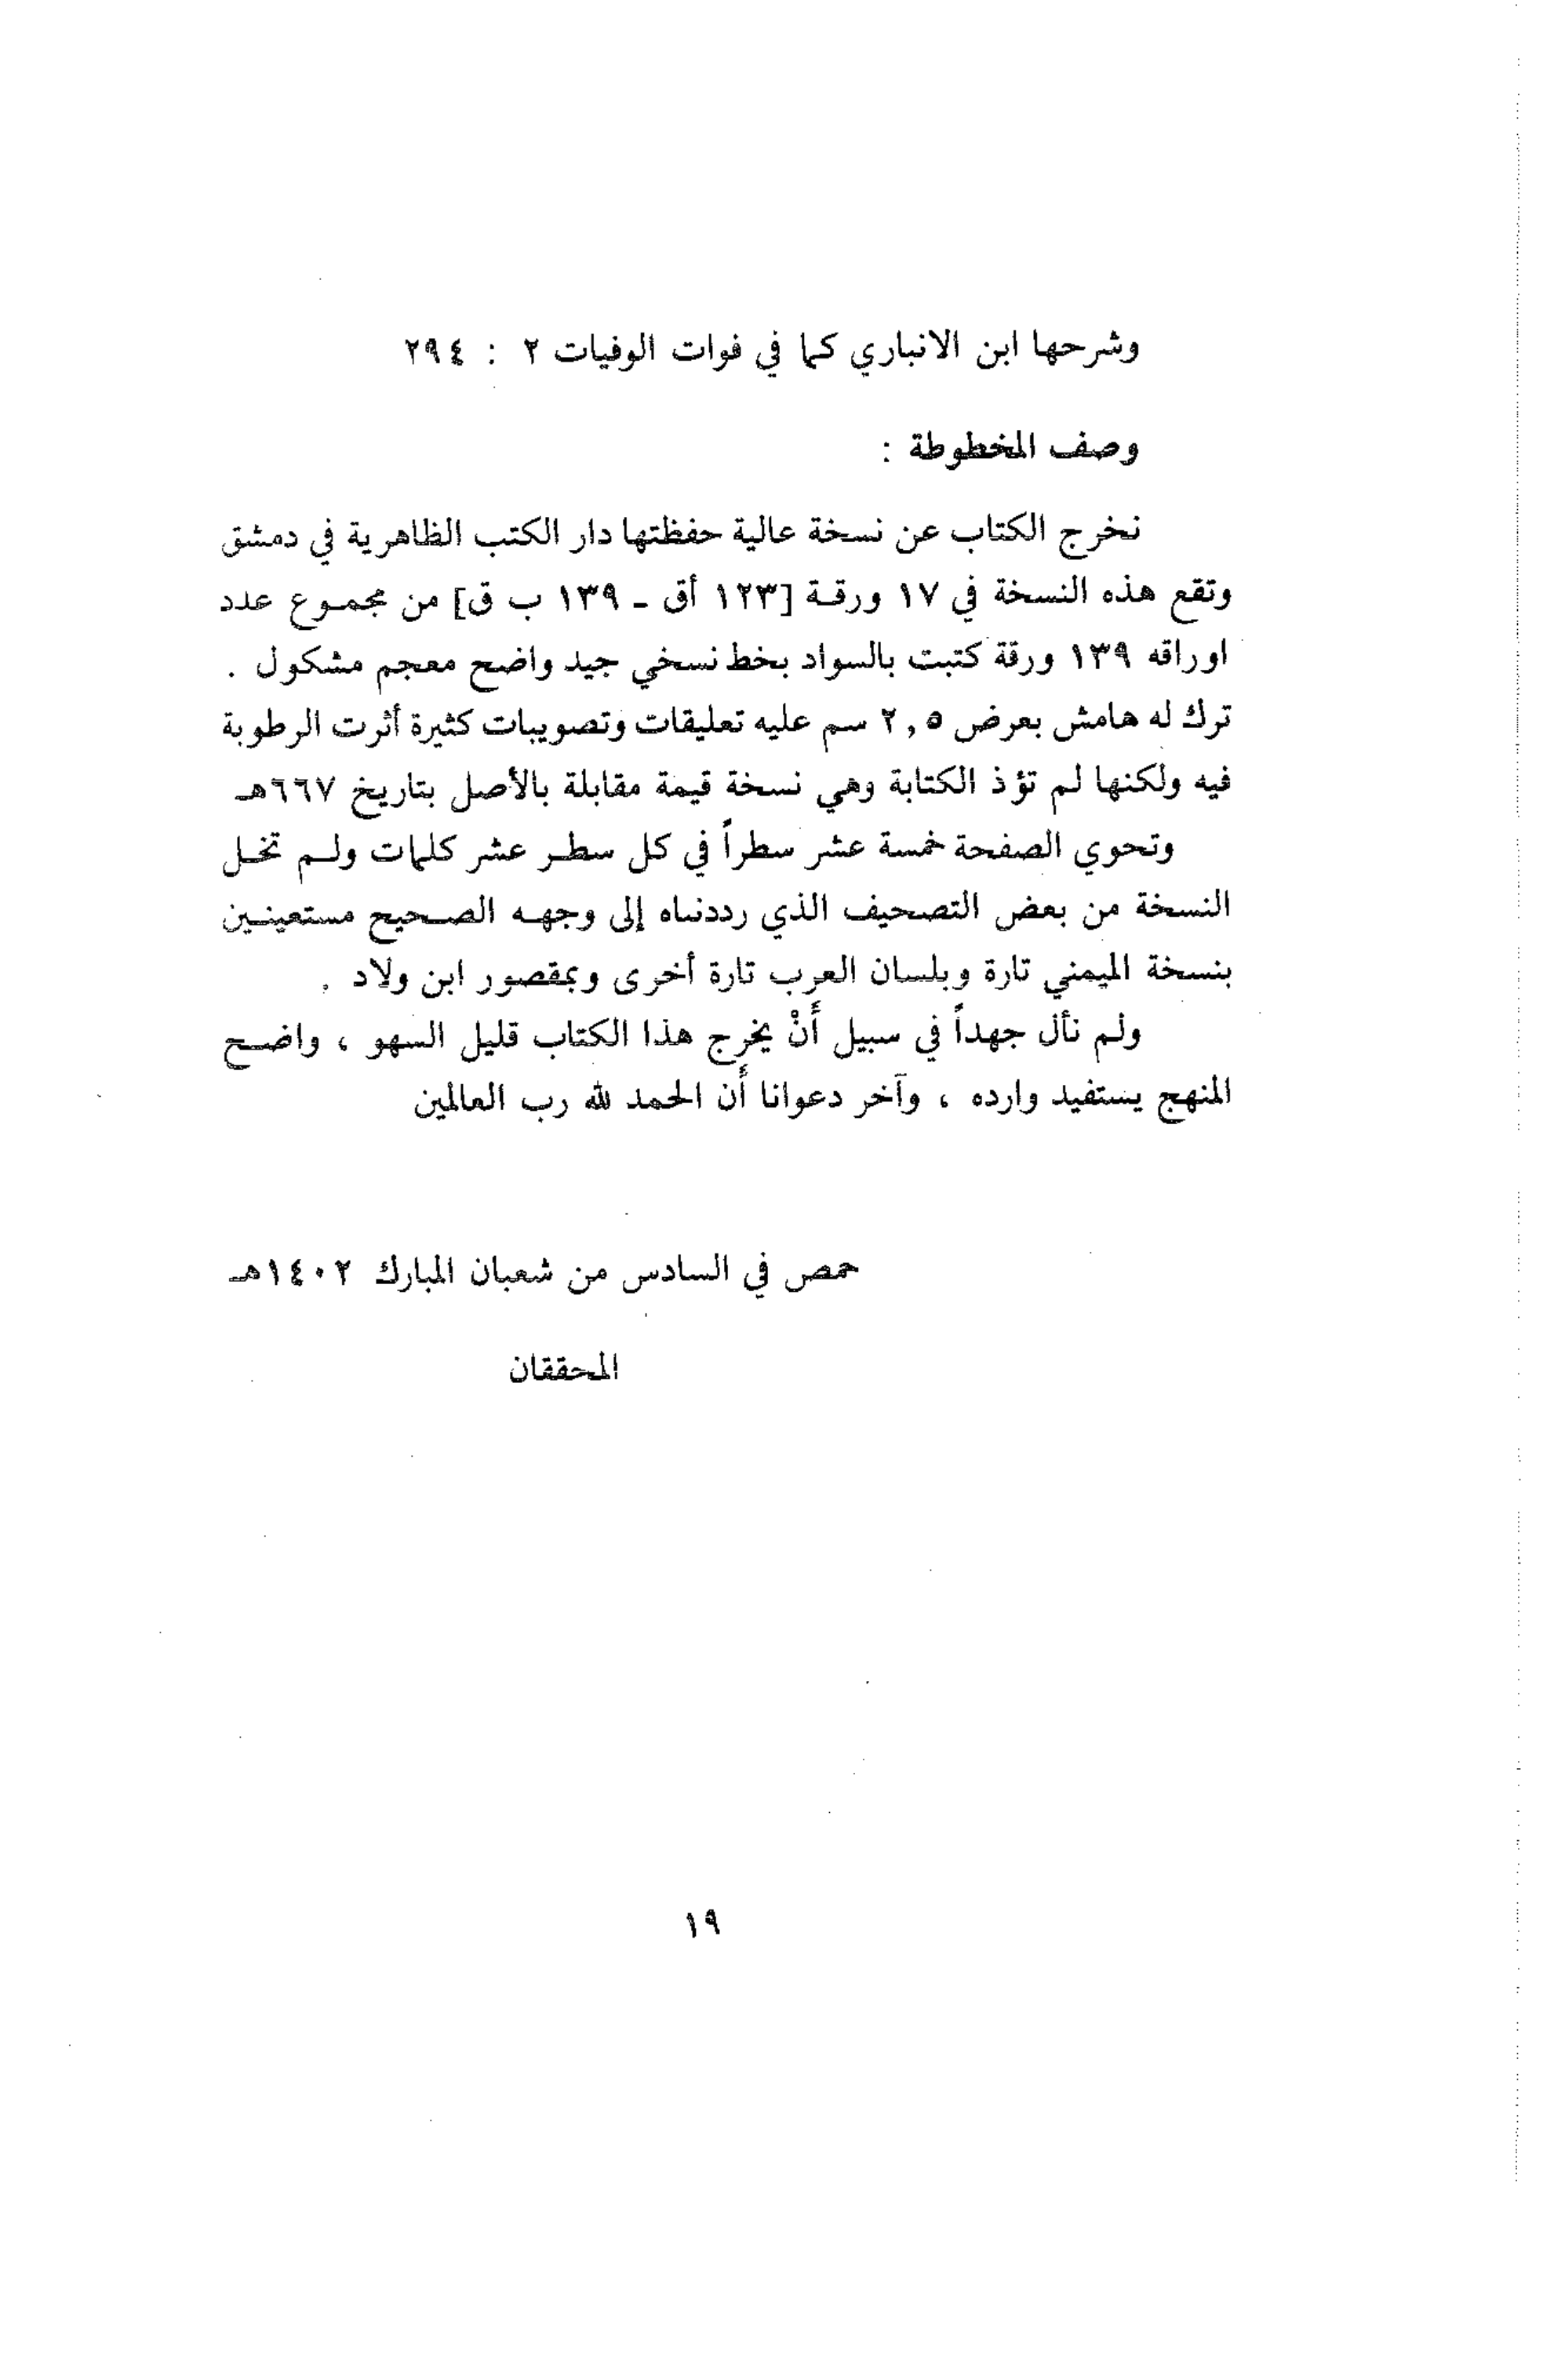 وشرحها ابن الانباري كما في فوات الوفيات ٢ : ٢٩٤
وصف المخطوطة :
نخرج الكتاب عن نسخة عالية حفظتها دار الكتب الظاهرية في دمشق
وتقع هذه النسخة في ١٧ ورقة [١٢٣ أق - ١٣٩ ب ق] من مجموع عدد
اوراقه ١٣٩ ورقة كتبت بالسواد بخط نسخي جيد واضح معجم مشكول .
ترك له هامش بعرض ٢,٥ سم عليه تعليقات وتصويبات كثيرة أثرت الرطوبة
فيه ولكنها لم تؤذ الكتابة وهي نسخة قيمة مقابلة بالأصل بتاريخ ٦٦٧هـ
وتحوي الصفحة خمسة عشر سطراً في كل سطر عشر كلمات ولم تخل
النسخة من بعض التصحيف الذي رددناه إلى وجهه الصحيح مستعينين
بنسخة الميمني تارة وبلسان العرب تارة أخرى وبمقصور ابن ولاد .
ولم نأل جهداً في سبيل أَنْ يخرج هذا الكتاب قليل السهو ، واضح
المنهج يستفيد وارده ، وآخر دعوانا أَن الحمد لله رب العالمين
حمص في السادس من شعبان المبارك ١٤٠٢هـ
المحققان
١٩